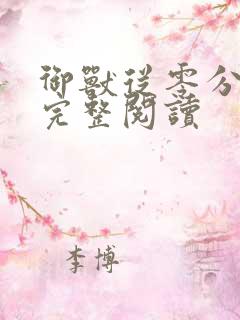 御獸從零分
完整閱讀
李博